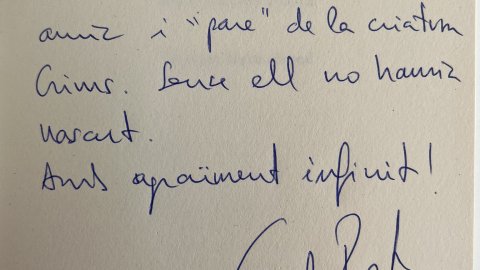 amic i "pare" de la criatura
Crims. Sense ell no hauria
nascut.
Amb agraïment infinit!